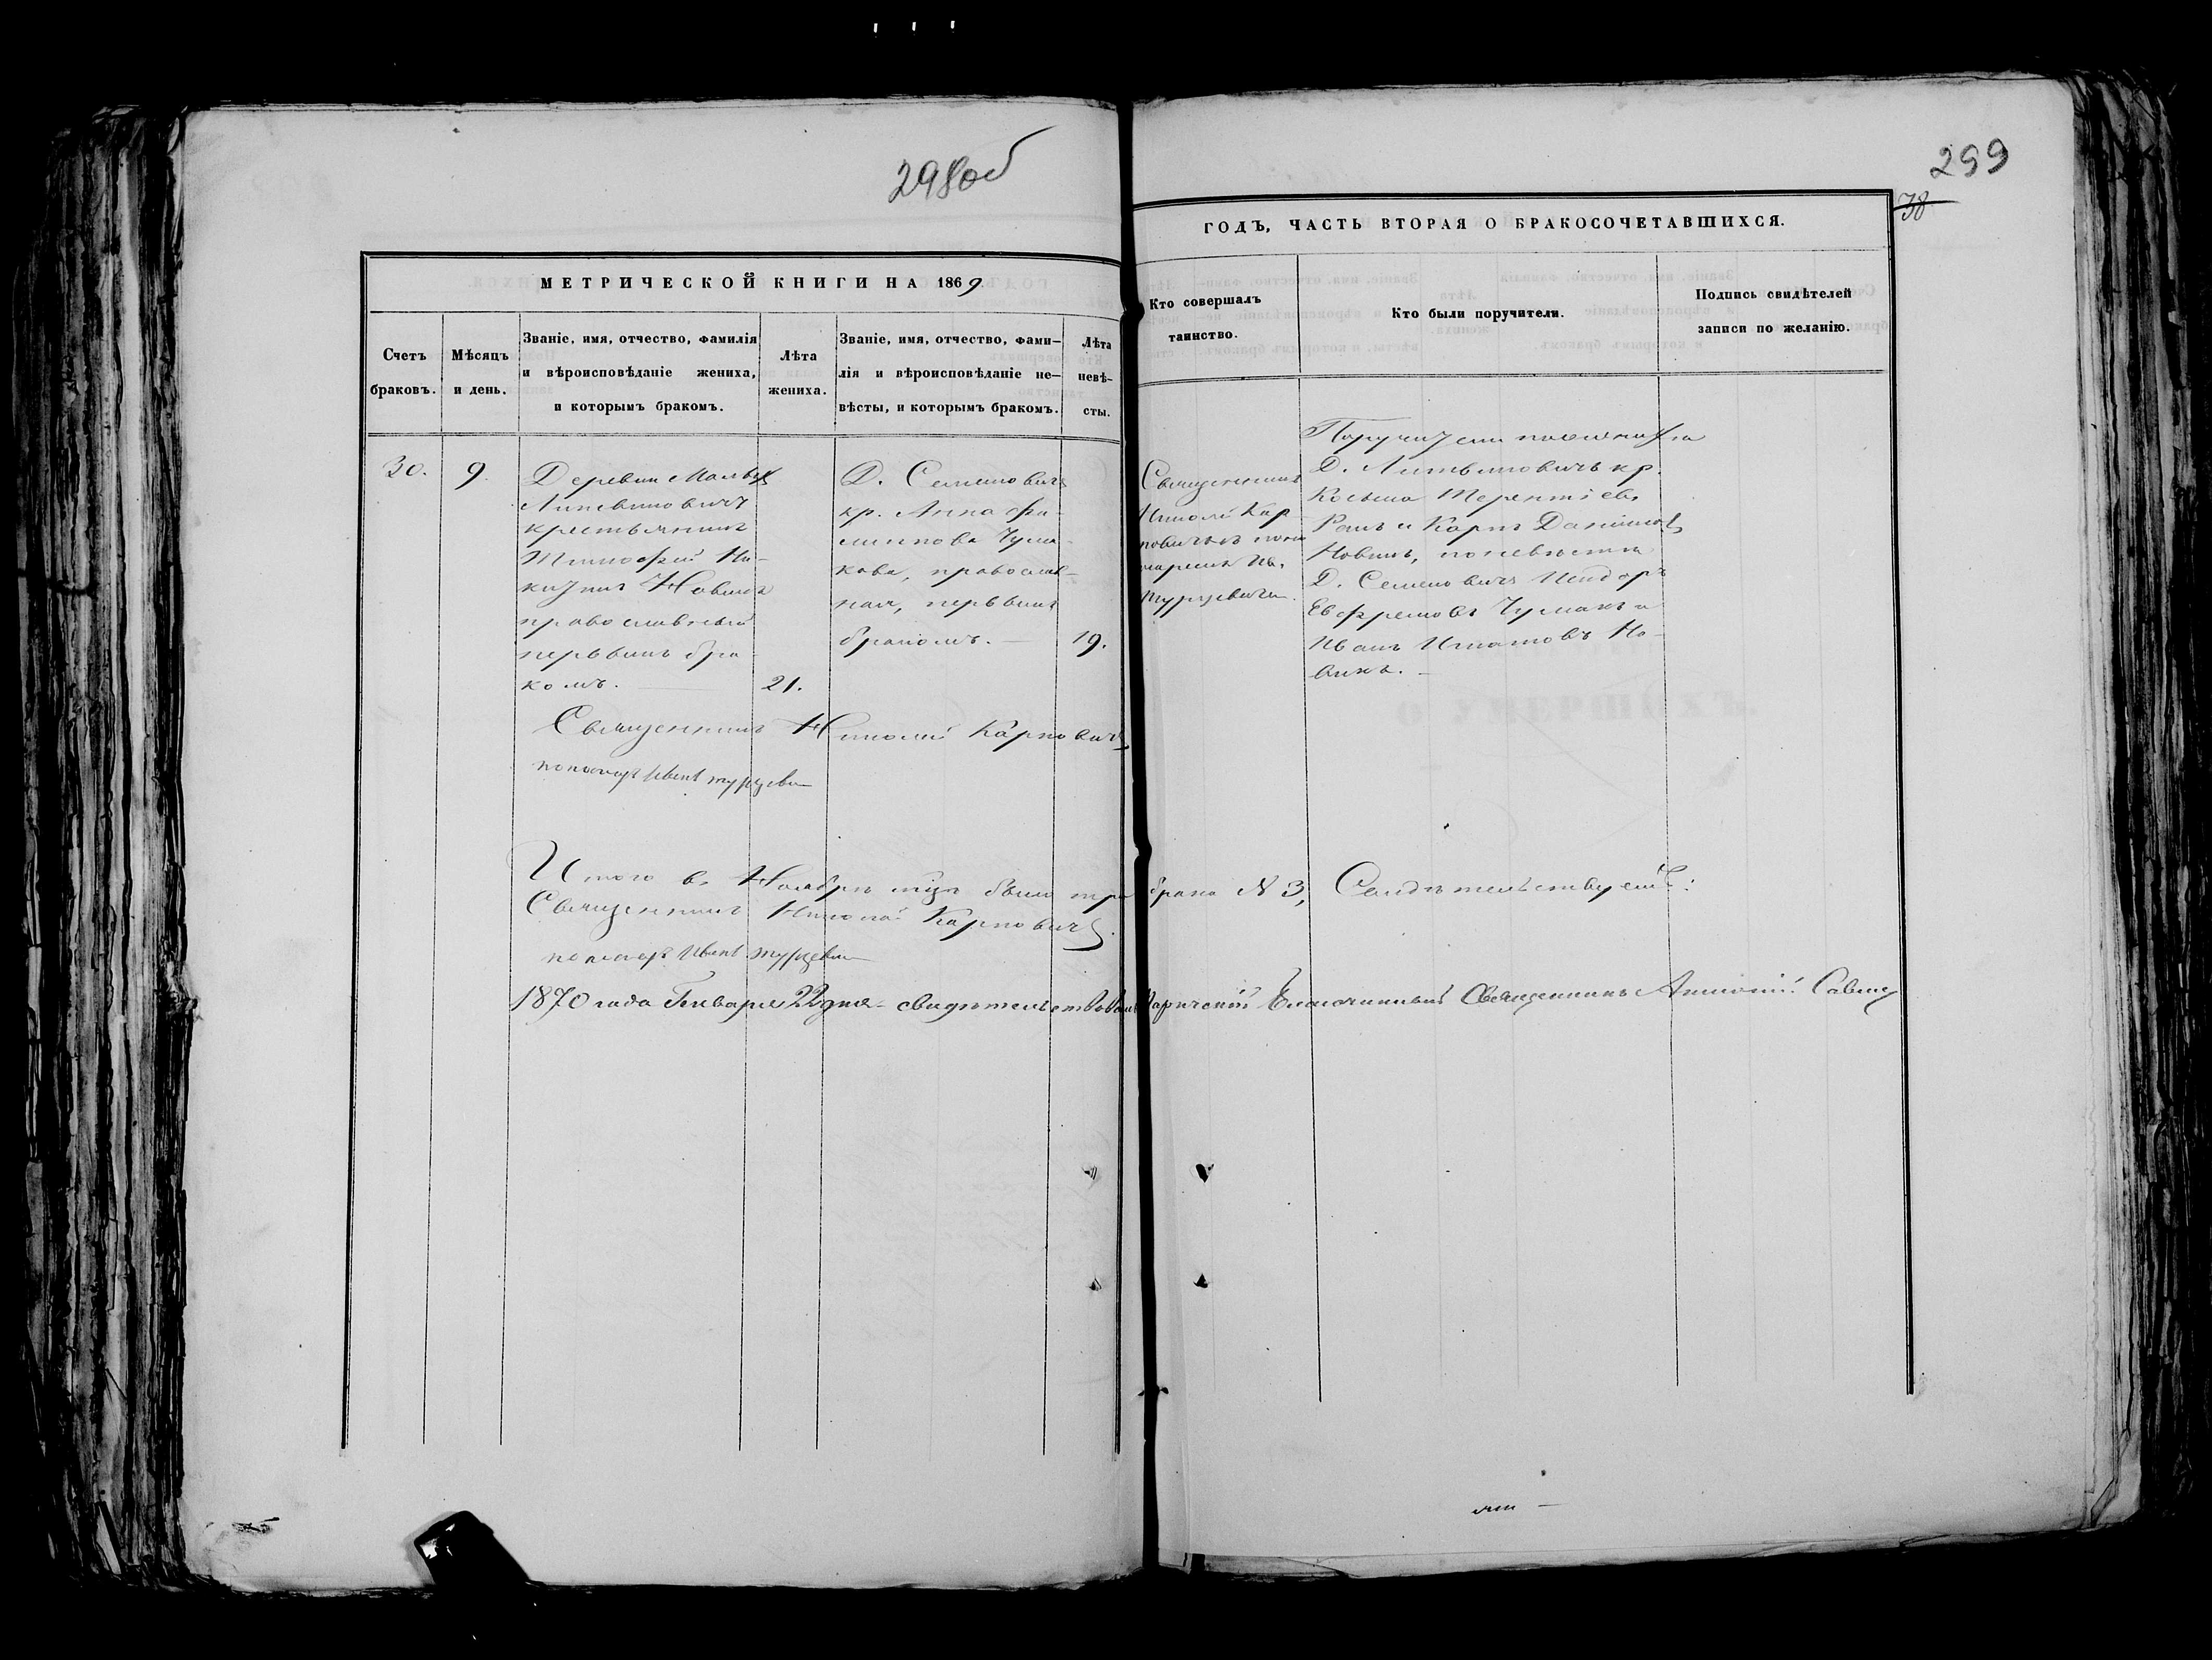 298об
299
38
МЕТРИЧЕСКОЙ КНИГИ НА 1869
ГОДЪ, ЧАСТЬ ВТОРАЯ О БРАКОСОЧЕТАВШИХСЯ.
Счетъ
браковъ.
Мѣсяцъ
и день.
Званіе, имя, отчество, фамилія
и вѣроисповѣданіе жениха,
и которымъ бракомъ.
Лѣта
жениха.
Званіе, имя, отчество, фами–
лія и вѣроисповѣданіе не–
вѣсты, и которымъ бракомъ.
Лѣта
невѣ–
сты.
Кто совершалъ
таинство.
Кто были поручители.
Подпись свидѣтелей
записи по желанію.
30.
9.
Деревни
Литвиновичъ
крестьянинъ
Тимофей Ни-
китинъ Новикъ
православный
первымъ бра-
комъ.
21.
Д. Семеновичъ
кр. Анна Фи-
липпова Чума-
кова, православ-
ная, первымъ
бракомъ. —
19.
Священникъ
Николай Кар-
повичъ съ поно-
маремъ Ив.
Турцевичемъ.
Поручители по женихѣ
Д. Литвиновичъ кр.
Косьма Терентіевъ
и Карпъ Даниловъ
Новикъ, по невѣстѣ
Д. Семеновичъ
Евфремовъ Чумакъ и
Иванъ Игнатовъ Но-
викъ. —
Священникъ Николай Карповичъ
пономарь Иванъ Турцевичъ
Итого въ Ноябрѣ мцѣ было три брака N 3, Свидѣтельствуемъ:
Священникъ Николай Карповичъ.
пономарь Иванъ Турцевичъ
1870 года Генваря 22 дня свидѣтельствовалъ Паричскій Благочинный Священникъ Антоній Савич